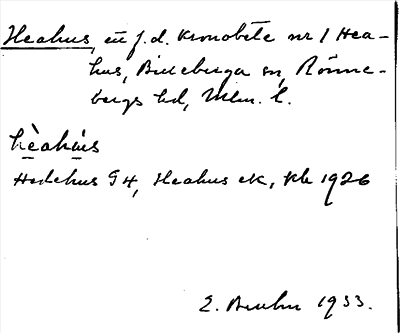 Heahus, en f.d. kronobete nr 1 Hea-
hus, Billeberga sn, Rönne-
bergs hd, Mlm. l.
hèahùs
Hedehus G 4, Heahus ek, kb 1926
1933.